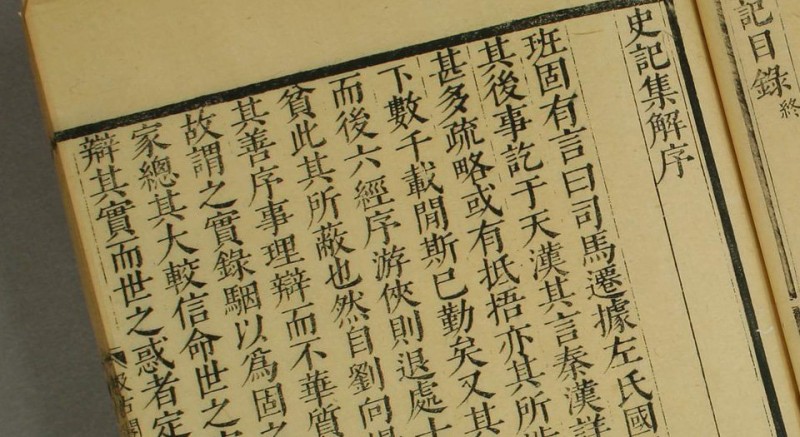 記目錄終
史記集解序
班固有言曰司馬遷據左氏國
其後事訖于天漢其言秦漢詳
甚多疏略或有抵捂亦其所
下數千載閒斯已勤矣又其
而後六經序游俠則退處士
貧此其所蔽也然自劉向揚
其善序事理辯而不華質
故謂之實錄駰以爲固之
家總其大較信命世之
辯其實而世之惑者定
汲古閣